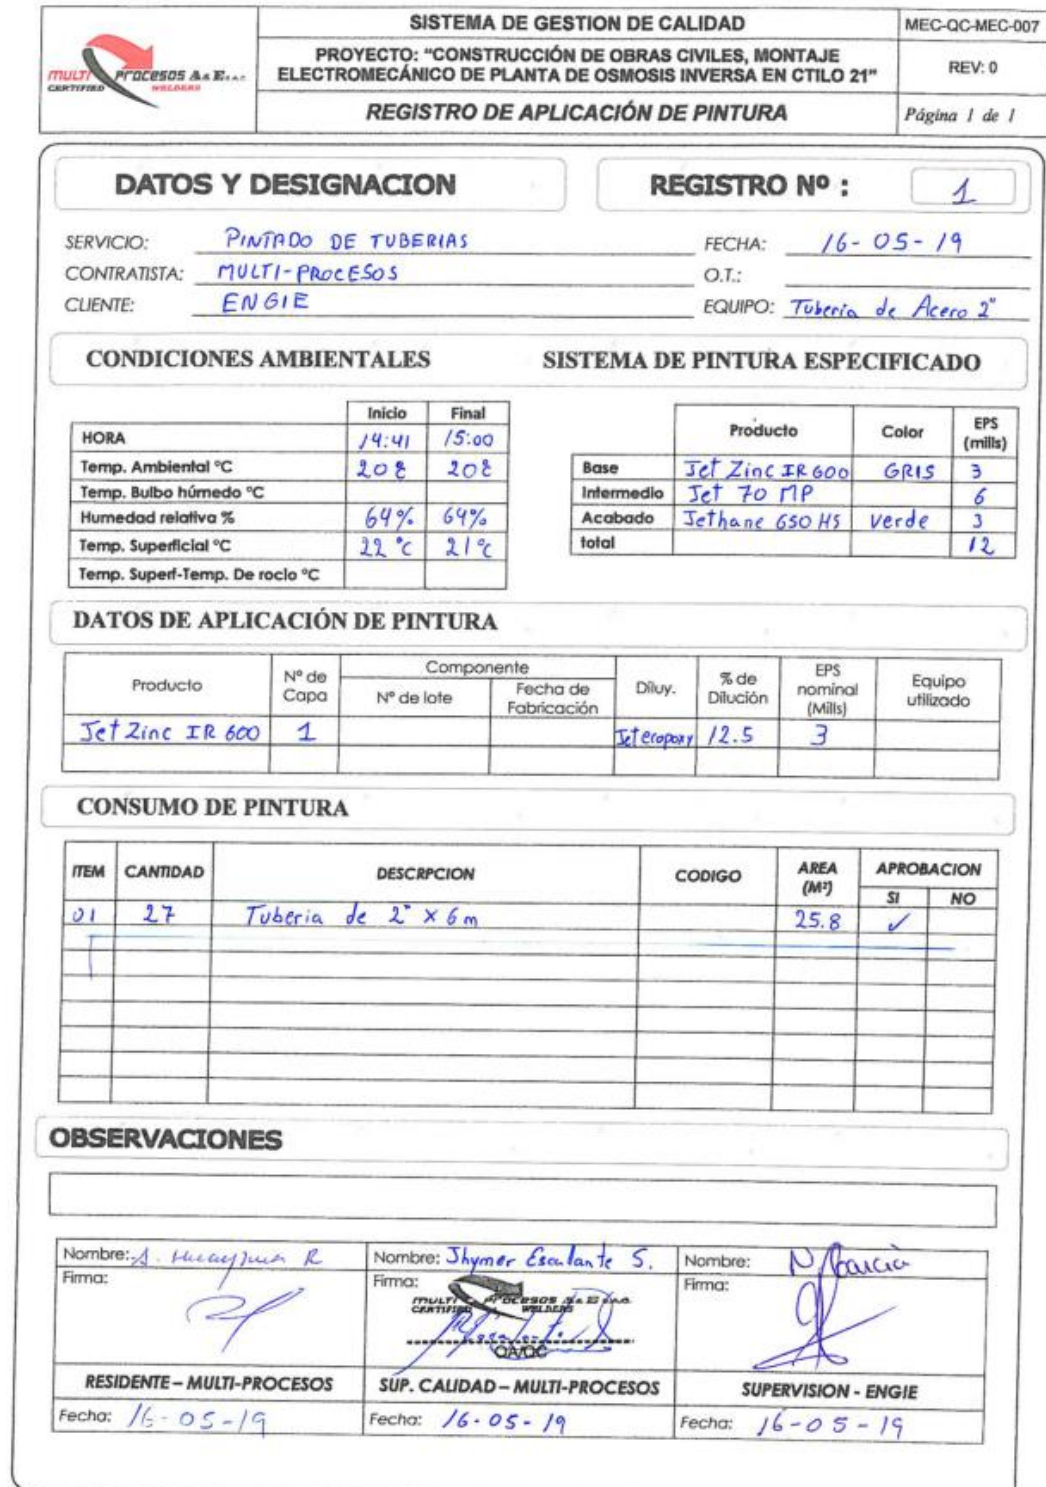 MULTI PROCESOS A&E S.A.C.
CERTIFIED WELDERS
SISTEMA DE GESTION DE CALIDAD
MEC-QC-MEC-007
PROYECTO: "CONSTRUCCIÓN DE OBRAS CIVILES, MONTAJE
ELECTROMECÁNICO DE PLANTA DE OSMOSIS INVERSA EN CTILO 21"
REV: 0
REGISTRO DE APLICACIÓN DE PINTURA
Página 1 de 1
DATOS Y DESIGNACION
REGISTRO Nº : 1
SERVICIO: PINTADO DE TUBERIAS
FECHA: 16-05-19
CONTRATISTA: MULTI-PROCESOS
O.T.:
CLIENTE: ENGIE
EQUIPO: Tuberia de Acero 2"
CONDICIONES AMBIENTALES
SISTEMA DE PINTURA ESPECIFICADO
Inicio Final
HORA 14:41 15:00
Temp. Ambiental ºC 20º 20º
Temp. Bulbo húmedo ºC
Humedad relativa % 64% 64%
Temp. Superficial ºC 22 °c 21 °c
Temp. Superf-Temp. De rocío ºC
Producto Color EPS (mills)
Base Jet Zinc IR 600 GRIS 3
Intermedio Jet 70 MP 6
Acabado Jethane 650 HS verde 3
total 12
DATOS DE APLICACIÓN DE PINTURA
Producto Nº de Capa Componente Nº de lote Fecha de Fabricación Diluy. % de Dilución EPS nominal (Mills) Equipo utilizado
Jet Zinc IR 600 1 12.5 3
CONSUMO DE PINTURA
ITEM CANTIDAD DESCRPCION CODIGO AREA (M²) APROBACION
SI NO
01 27 Tuberia de 2" x 6 m 25.8 ✓
OBSERVACIONES
Nombre: R
Nombre: Jhymer Escalante S.
Nombre: N. Garcia
Firma:
Firma:
Firma:
MULTI PROCESOS A&E S.A.C.
CERTIFIED WELDERS
QA/QC
RESIDENTE – MULTI-PROCESOS
SUP. CALIDAD – MULTI-PROCESOS
SUPERVISION - ENGIE
Fecha: 16-05-19
Fecha: 16-05-19
Fecha: 16-05-19